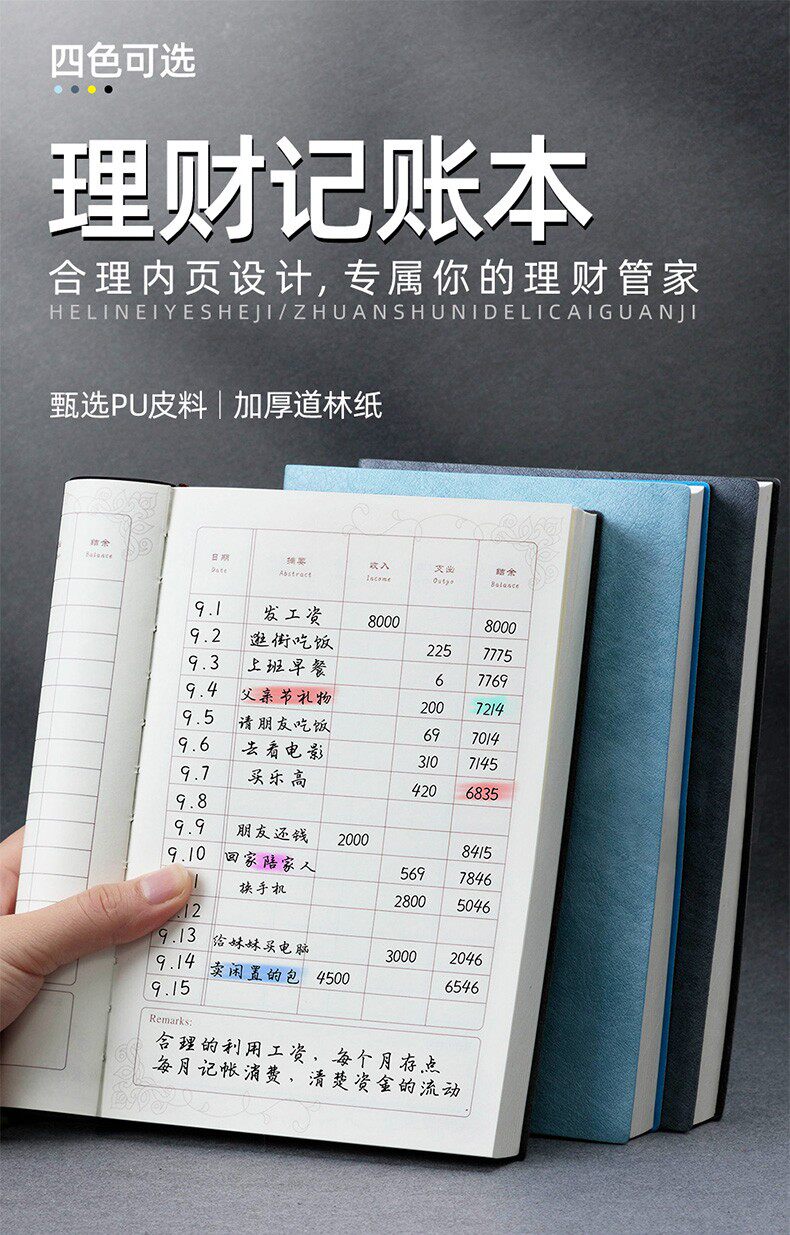 四色可选
理财记账本
合理内页设计, 专属你的理财管家
HELINEIYESHEJI/ZHUANSHUNIDELICAIGUANJI
甄选PU皮料 | 加厚道林纸
结余
Balance
日期 摘要 收入 支出 结余
Date Abstract Income Outpo Balance
9.1 发工资 8000 8000
9.2 逛街吃饭 225 7775
9.3 上班早餐 6 7769
9.4 父亲节礼物 200 7214
9.5 请朋友吃饭 69 7014
9.6 去看电影 310 7145
9.7 买乐高 420 6835
9.8
9.9 朋友还钱 2000 8415
9.10 回家陪家人 569 7846
1 换手机 2800 5046
.12
9.13 给妹妹买电脑 3000 2046
9.14 卖闲置的包 4500 6546
9.15
Remarks:
合理的利用工资，每个月存点
每月记帐消费，清楚资金的流动